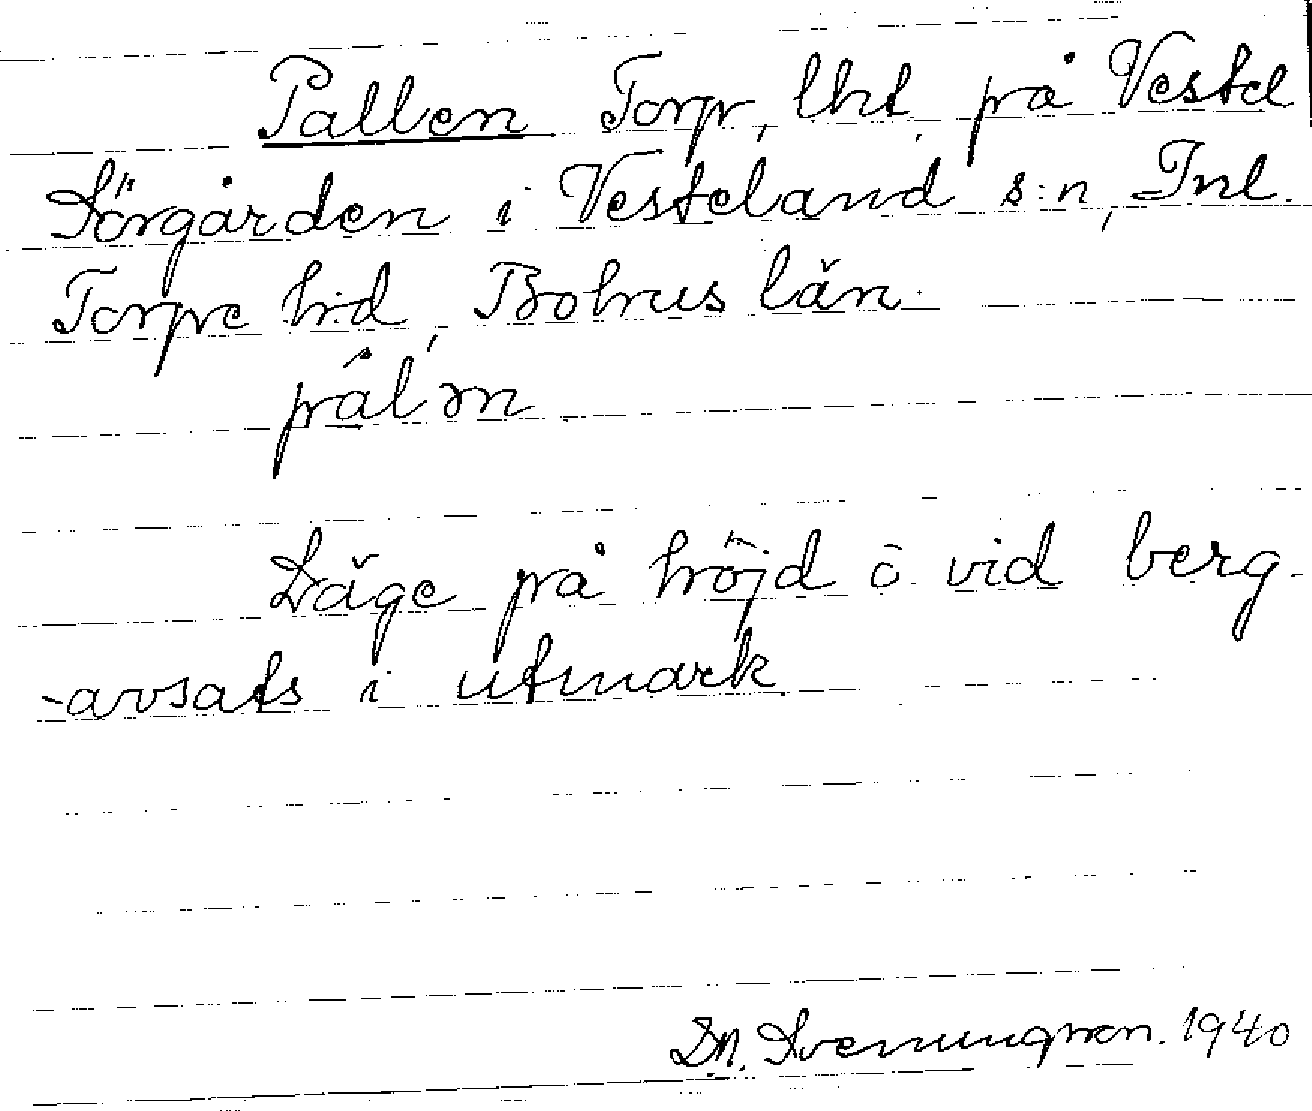 Pallen Torp, lht på Vestel
Sörgården i Vesteland s:n, Inl.
Torpe hd, Bohus län.
pál`m
Läge på höjd o. vid berg-
-avsats i utmark
Sn. Svenungsson. 1940